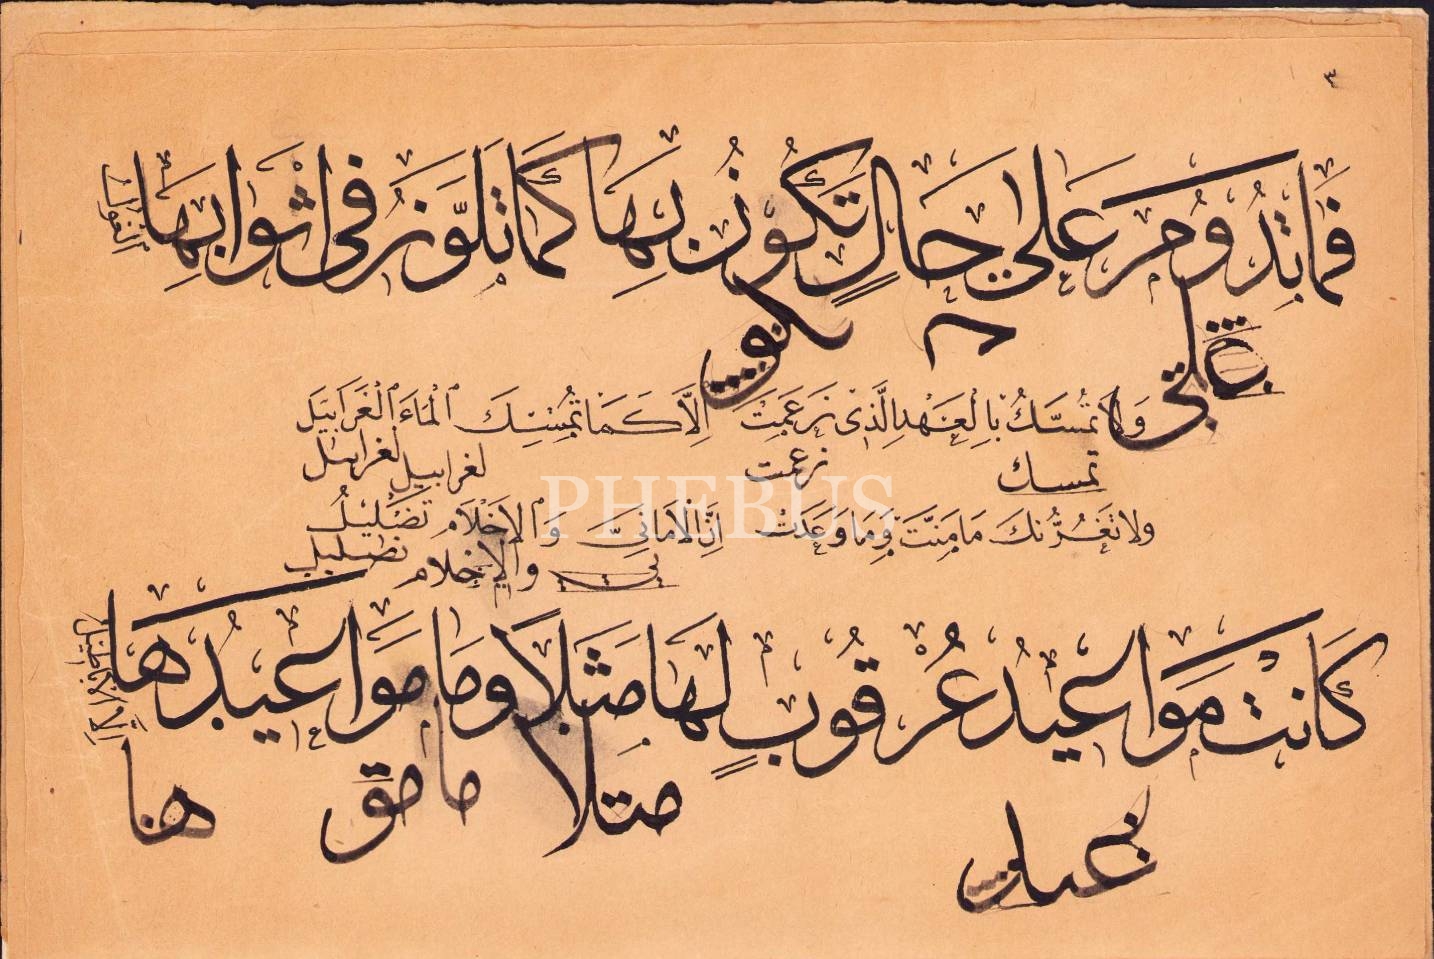 ٣
فَمَا تَدُوُمُ عَلَى حَالٍ تَكُوُنُ بِهَا كَمَا تَلَوَّنُ فِى اَثْوَابِهَا الغول
على
م
تكون
وَلَا تَمَسَّكُ بِالْعَهْدِ الَّذِى زَعَمَتْ اِلَّا كَمَا تُمْسِكُ الْمَاءَ الْغَرَابِيلُ
تمسك زعمت لغرابيل لغرابيل
PHEBUS
ولا تَغُرَّنْكَ مَا مَنَّتَ وَمَا وَعَدَتْ اِنَّ الْاَمَانِىَّ وَالْاِحْلَامَ تَضْلِيْلُ
نى والاحلام تضليل
كَانَتْ مَوَاعِيْدُ عُرْقُوبٍ لَهَا مَثَلًا وَمَا مَوَاعِيْدُهَا اِلَّا الاباطيل
مثلا ما مو ها